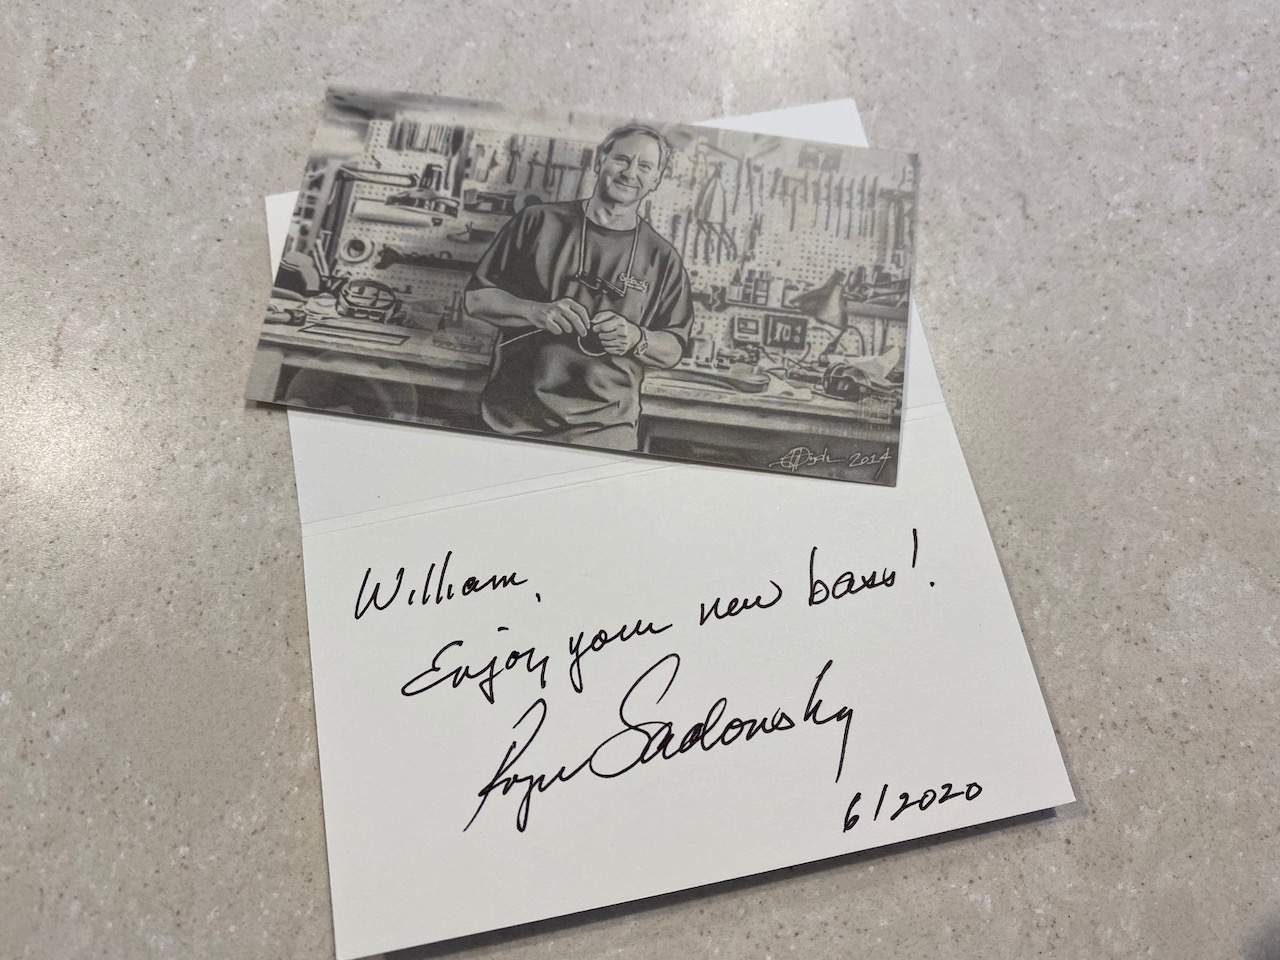 2014
William,
Enjoy your new bass!
Roger Sadowsky
6/2020